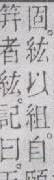 固。紘以組自頤
笄者紘記曰。